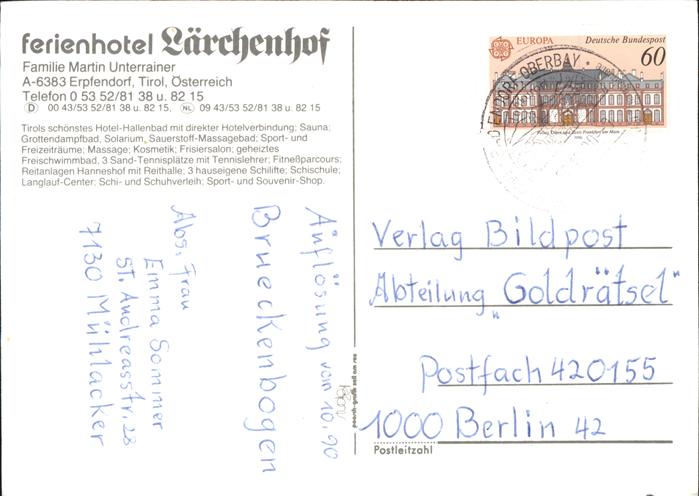 ferienhotel Lärchenhof
Familie Martin Unterrainer
A-6383 Erpfendorf, Tirol, Österreich
Telefon 0 53 52/81 38 u. 82 15
D 00 43/53 52/81 38 u. 82 15, NL 09 43/53 52/81 38 u. 82 15
Tirols schönstes Hotel-Hallenbad mit direkter Hotelverbindung; Sauna;
Grottendampfbad, Solarium, Sauerstoff-Massagebad; Sport- und
Freizeiträume; Massage; Kosmetik; Frisiersalon; geheiztes
Freischwimmbad, 3 Sand-Tennisplätze mit Tennislehrer; Fitneßparcours;
Reitanlagen Hanneshof mit Reithalle; 3 hauseigene Schilifte; Schischule;
Langlauf-Center; Schi- und Schuhverleih; Sport- und Souvenir-Shop.
EUROPA Deutsche Bundespost
60
Auflösung vom 10.90
Brueckenbogen
Abs. Frau
Emma Sommer
St. Andreasstr. 28
7130 Mühlacker
Verlag Bildpost
Abteilung „Goldrätsel"
Postfach 420155
1000 Berlin 42
Postleitzahl